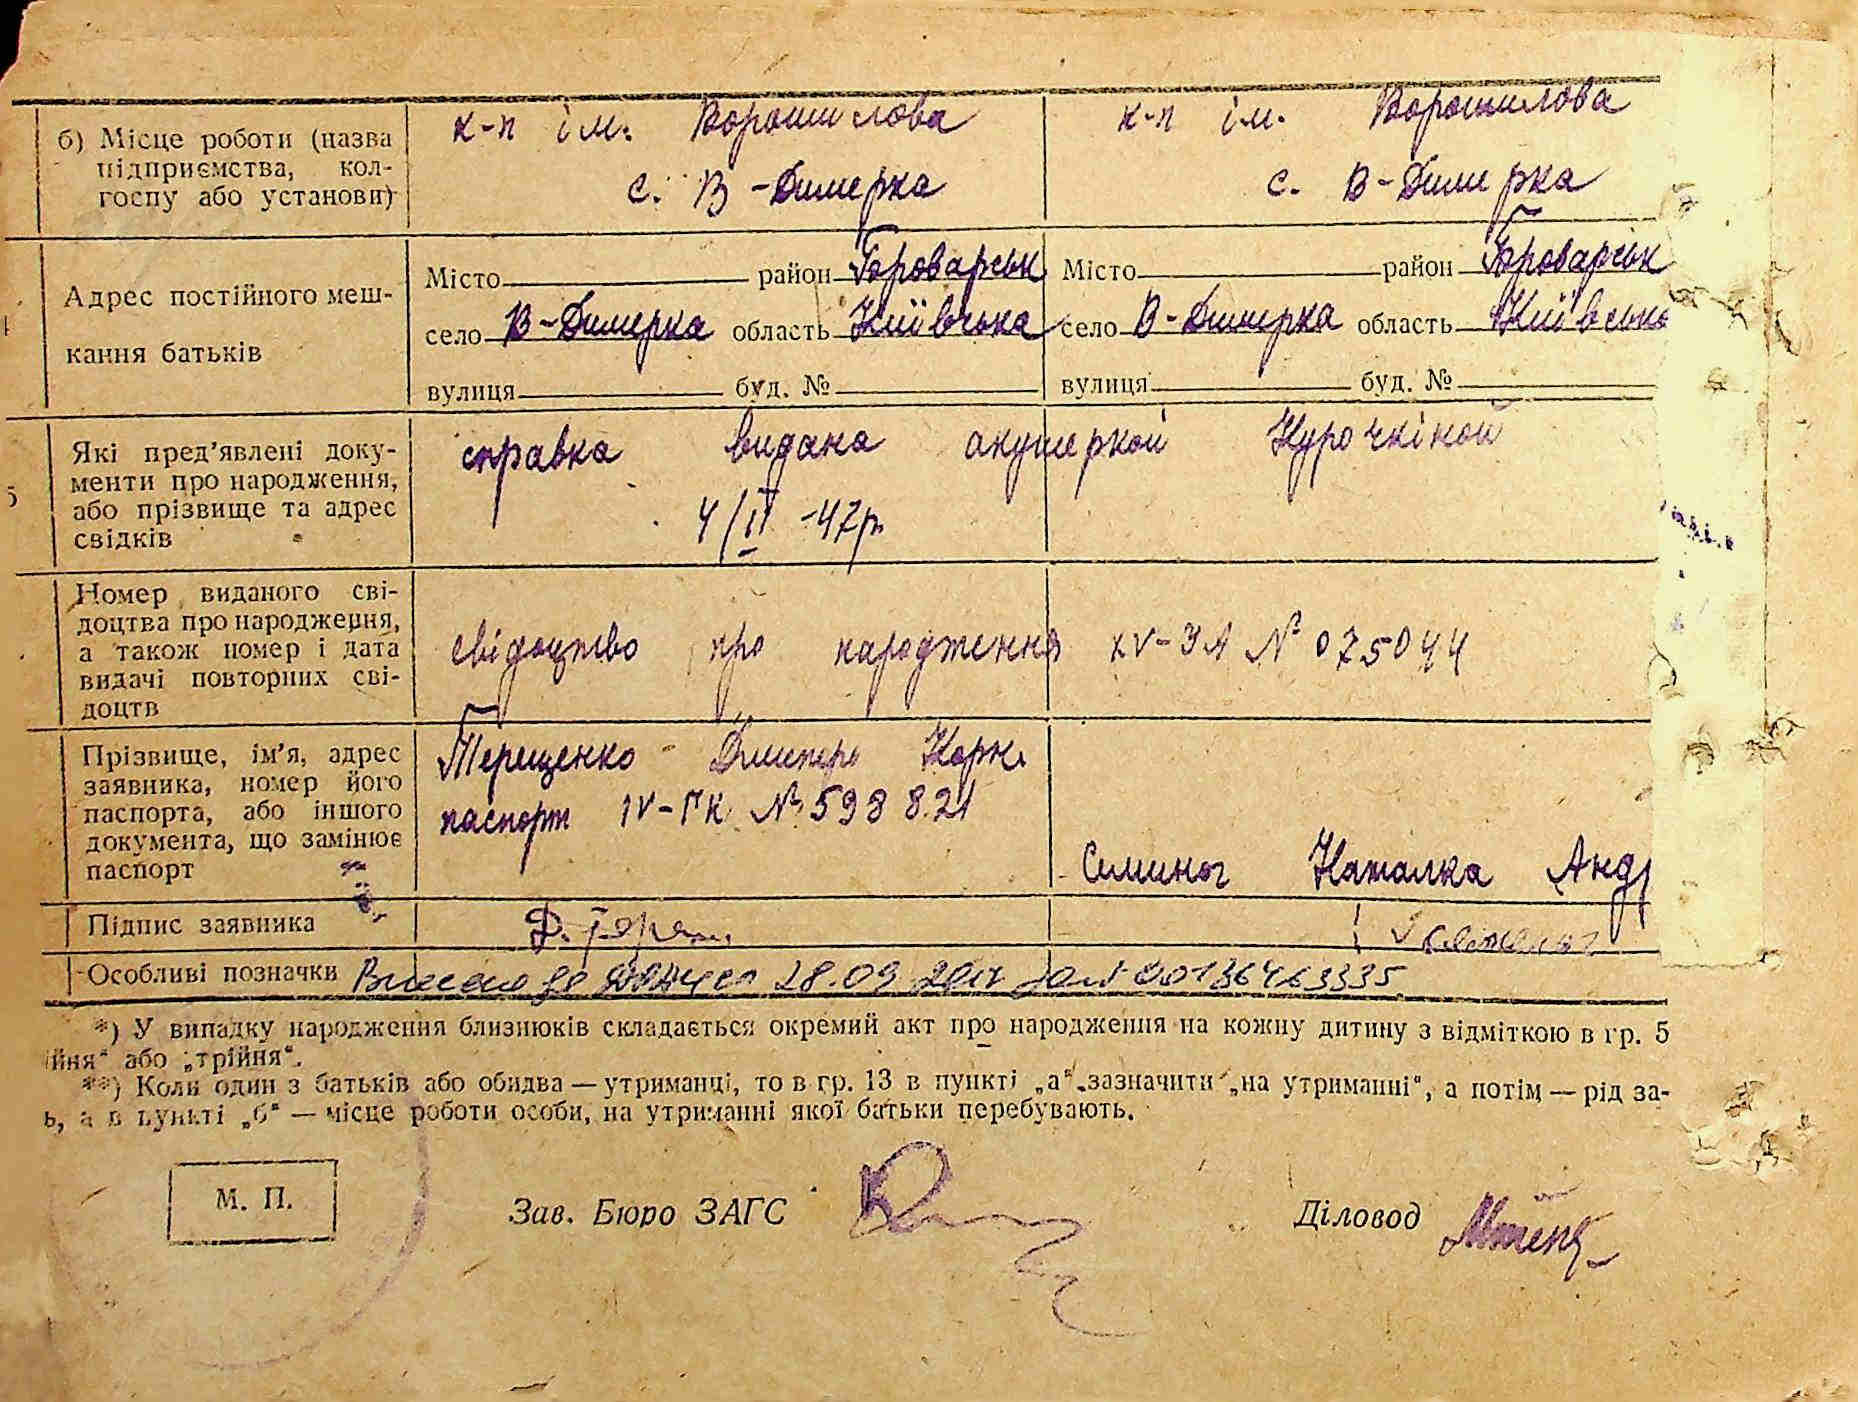 б) Місце роботи (назва підприємства, кол-госпу або установи)
к-п ім. Ворошилова
с. В-Димерка
к-п ім. Ворошилова
с. В-Димерка
Адрес постійного меш-
кання батьків
Місто район Броварськ
село В-Димерка область Київська
вулиця буд. №
Місто район Броварськ
село В-Димерка область Київська
вулиця буд. №
5
Які пред'явлені доку-
менти про народження,
або прізвище та адрес
свідків
справка видана акушеркой Курочкіной
4/II -47р.
Номер виданого сві-
доцтва про народження,
а також номер і дата
видачі повторних сві-
доцтв
свідоцтво про народження XV-ЗА № 075044
Прізвище, ім'я, адрес
заявника, номер його
паспорта, або іншого
документа, що замінює
паспорт
Терещенко Дмитро Корн.
паспорт IV-ГК № 598821
Семиног Наталка Анд
Підпис заявника
Д. Тере
Особливі позначки
28.09 00136463335
*) У випадку народження близнюків складається окремий акт про народження на кожну дитину з відміткою в гр. 5
ійня" або „трійня".
**) Коли один з батьків або обидва — утриманці, то в гр. 13 в пункті „а" зазначити „на утриманні", а потім — рід за-
ь, а в пункті „б" — місце роботи особи, на утриманні якої батьки перебувають.
М. П.
Зав. Бюро ЗАГС
Діловод